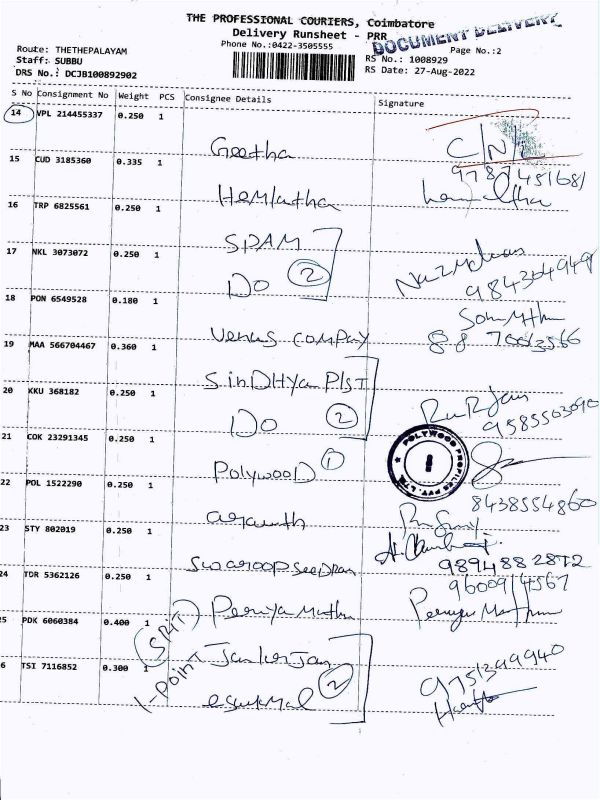 THE PROFESSIONAL COURIERS, Coimbatore
Delivery Runsheet - PRR
DOCUMENT DELIVERY
Phone No.:0422-3505555
Page No.:2
Route: THETHEPALAYAM
Staff: SUBBU
RS No.: 1008929
DRS No.: DCJB100892902
RS Date: 27-Aug-2022
S No Consignment No Weight PCS Consignee Details Signature
14 VPL 214455337 0.250 1
Geetha C/N/
15 CUD 3185360 0.335 1
Hemlatha
16 TRP 6825561 0.250 1
SPAM
17 NKL 3073072 0.250 1
DO 2
18 PON 6549528 0.180 1
Venus Company
19 MAA 566704467 0.360 1
SinDHya PlST
20 KKU 368182 0.250 1
DO 2
9585503090
21 COK 23291345 0.250 1
PolywooD 1
POLYWOOD PROFILES PVT. LTD.
22 POL 1522290 0.250 1
8438554860
23 STY 802019 0.250 1
Swaroop
9894882872
24 TDR 5362126 0.250 1
9600914567
(SRIT) Periya Muthu
25 PDK 6060384 0.400 1
1-Point
9751399940
26 TSI 7116852 0.300 1
2